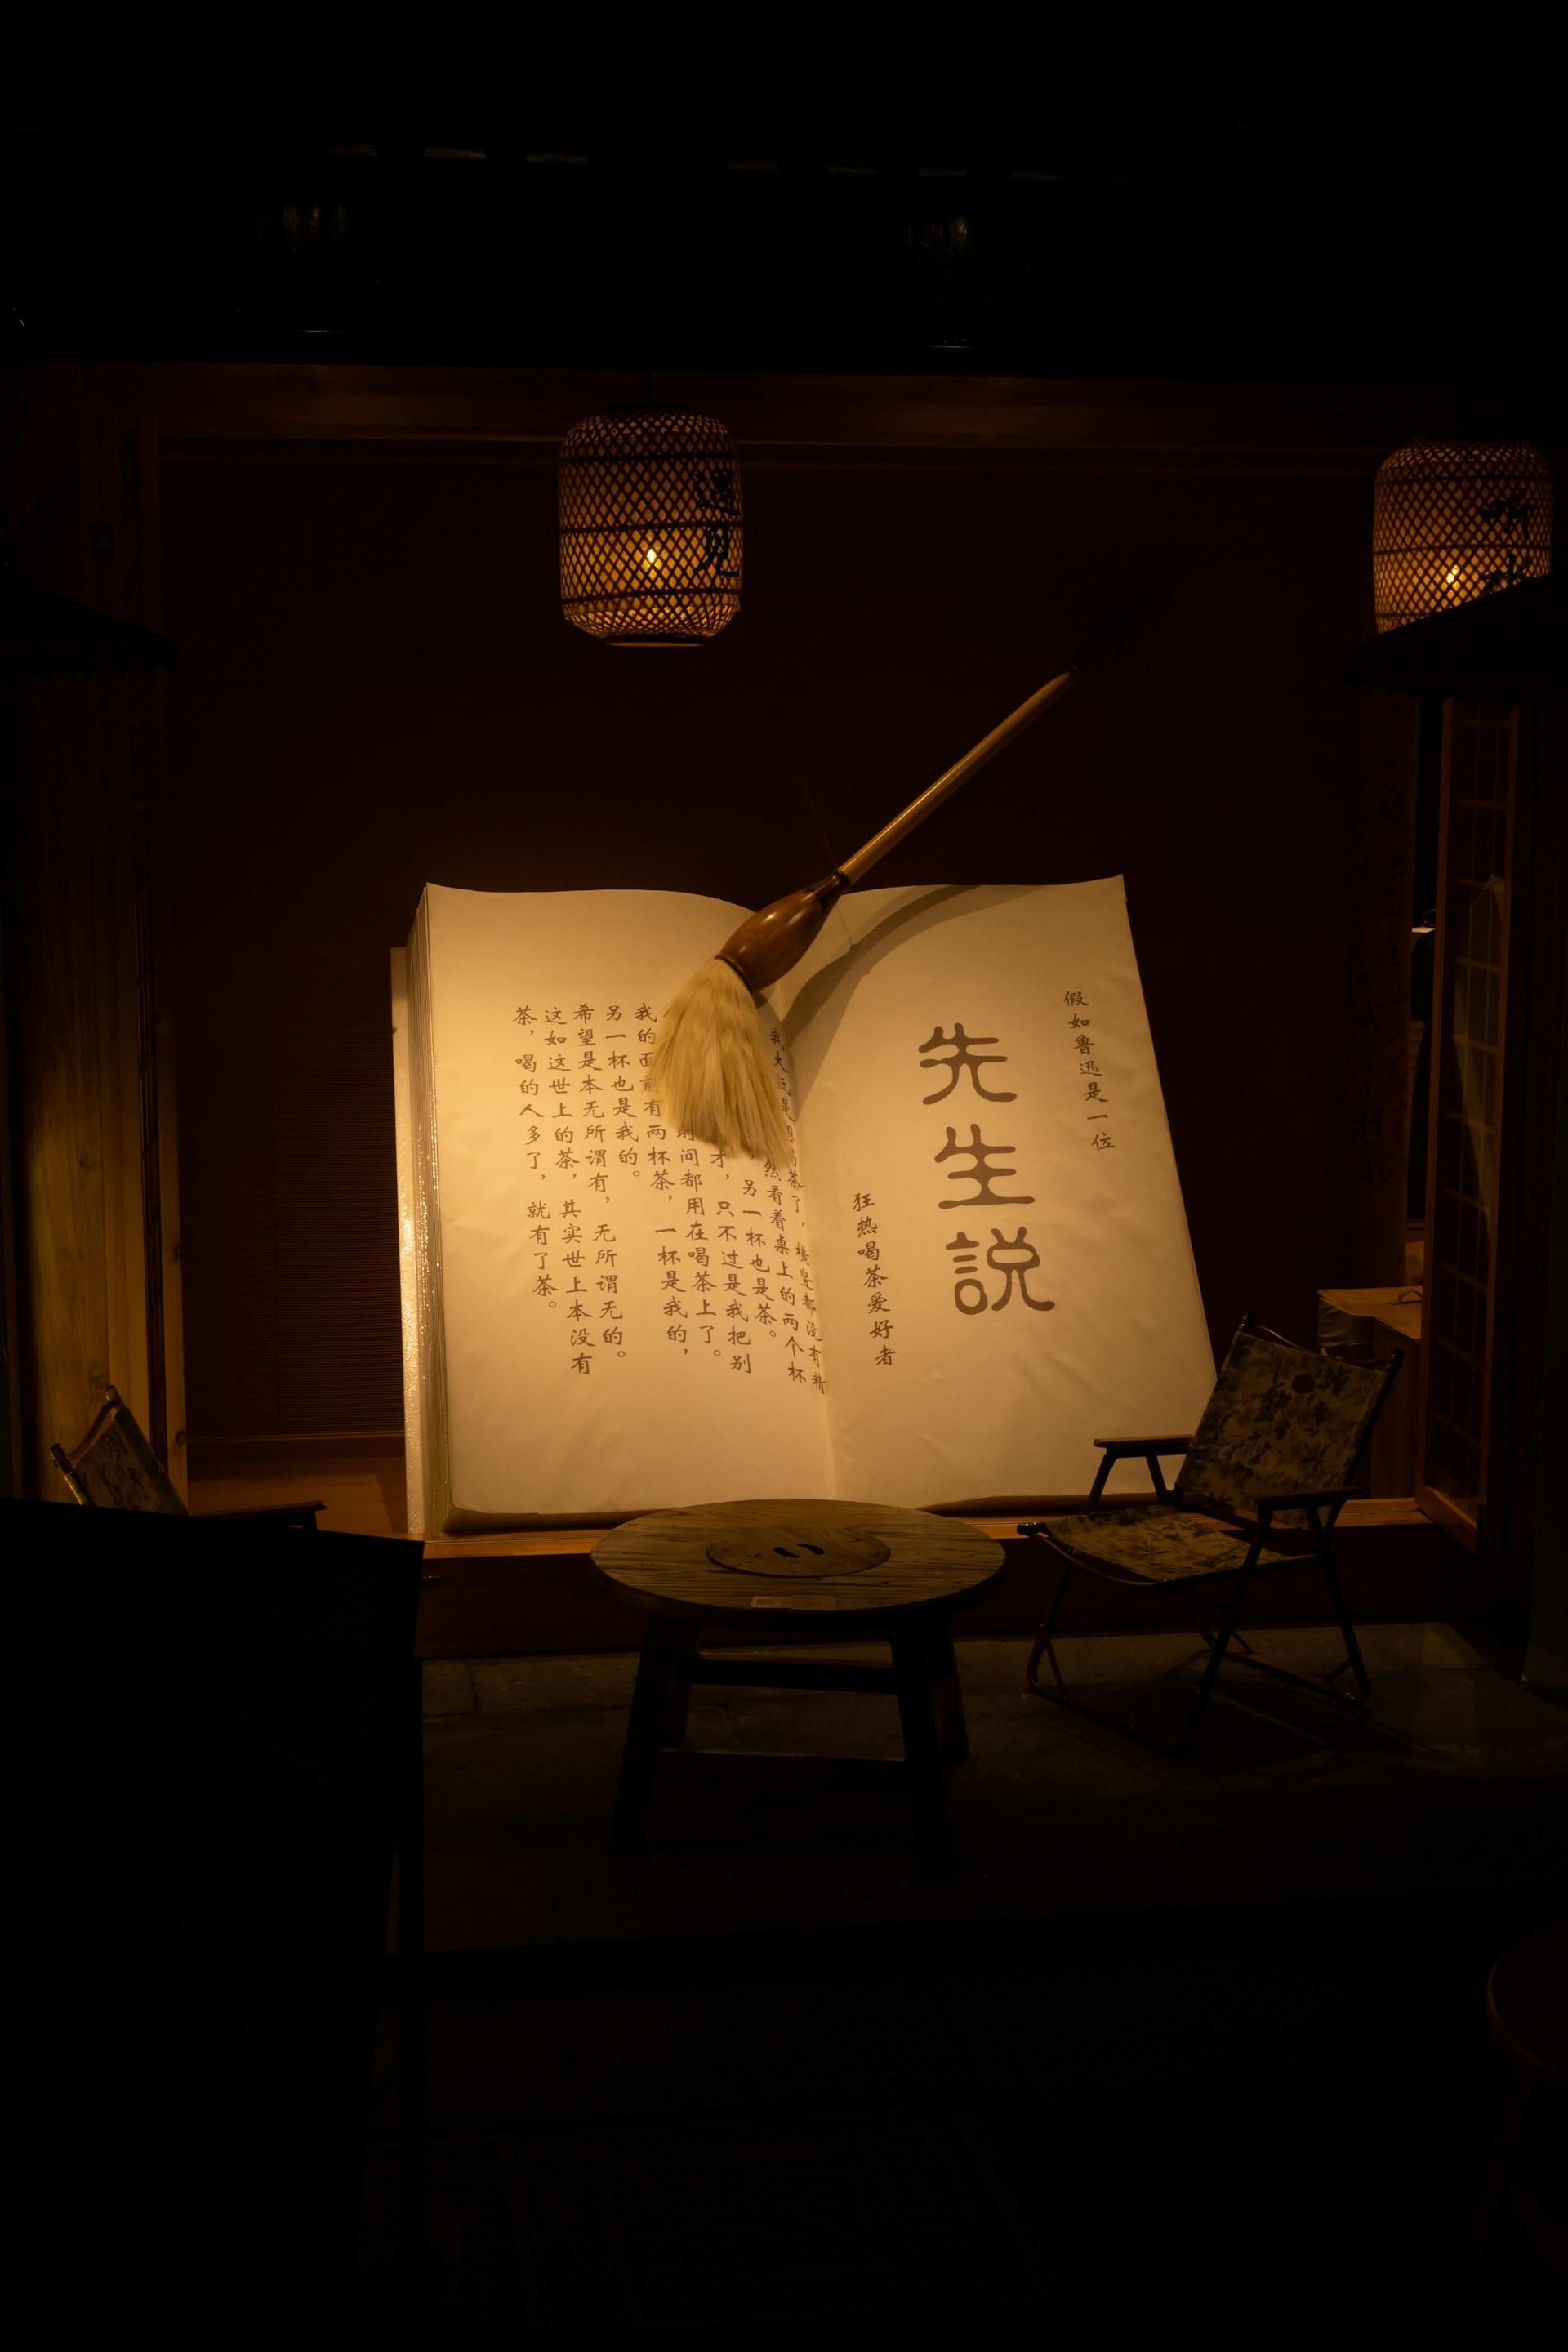 遇见
听
假如鲁迅是一位
先生説
狂热喝茶爱好者
茶了，横竖都没有精
然看着桌上的两个杯
另一杯也是茶。
才，只不过是我把别
间都用在喝茶上了。
我的面前有两杯茶，一杯是我的，
另一杯也是我的。
希望是本无所谓有，无所谓无的。
这如这世上的茶，其实世上本没有
茶，喝的人多了，就有了茶。